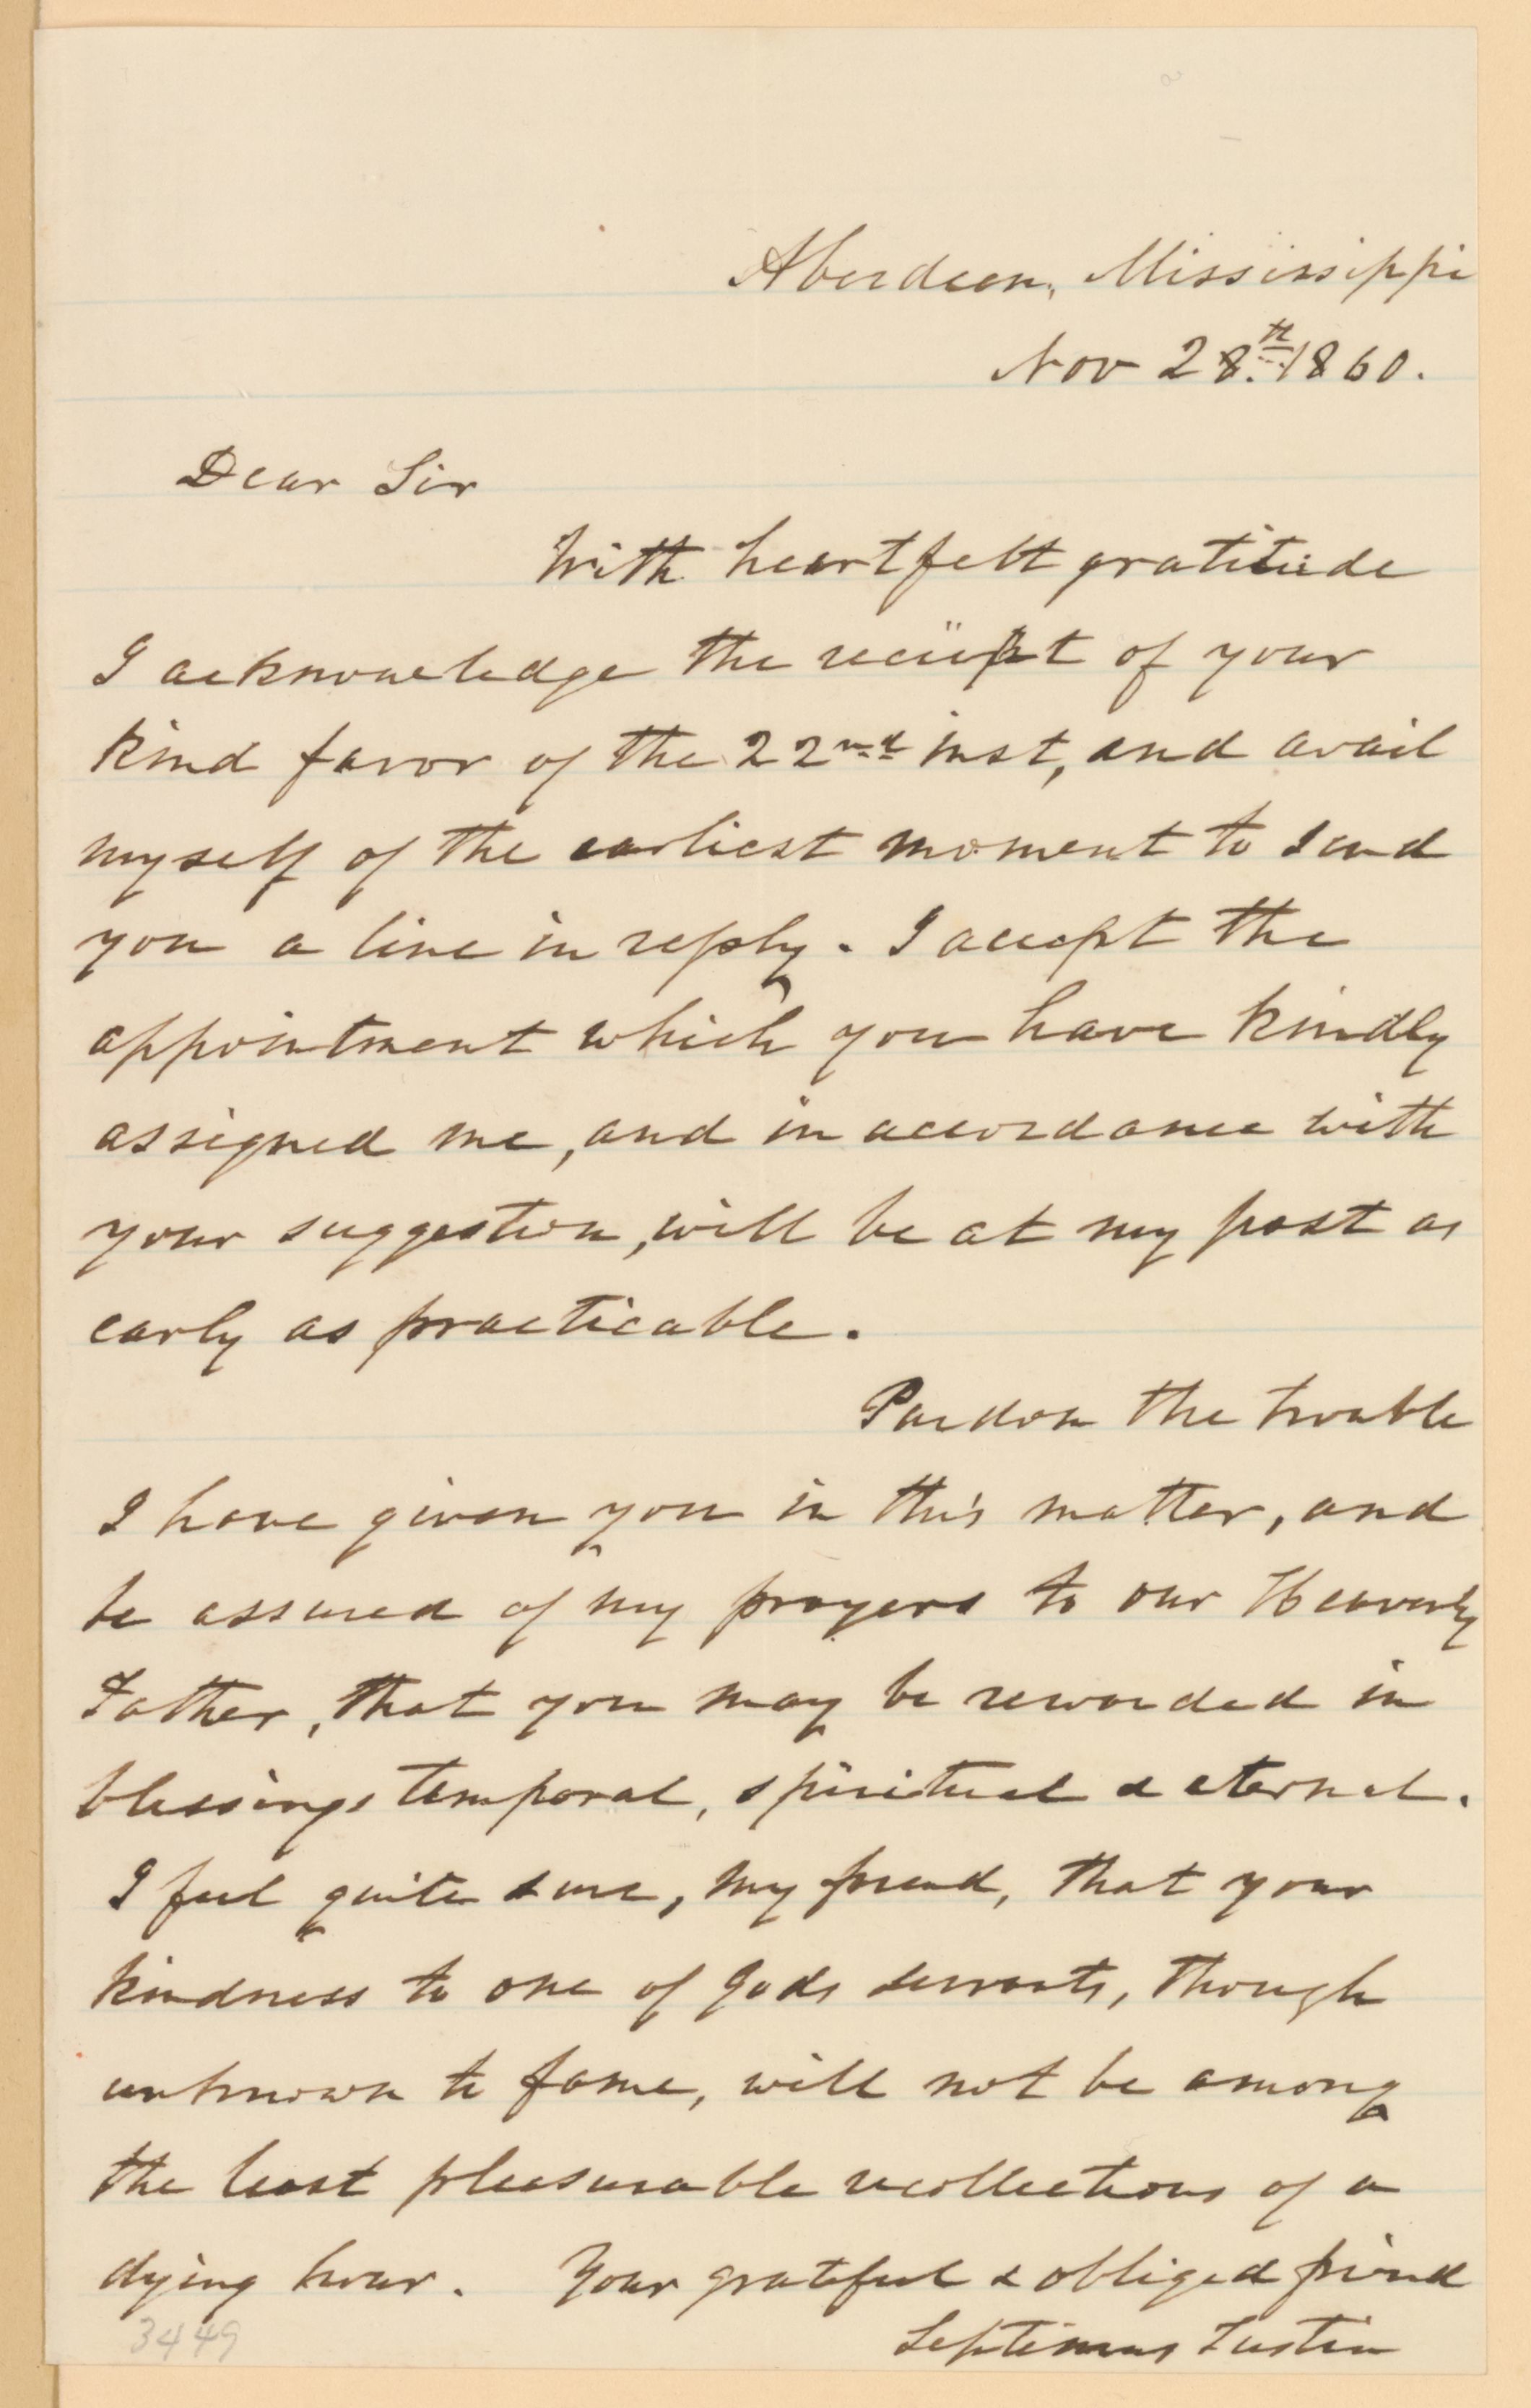 Aberdeen, Mississippi
Nov 28th. 1860.
Dear Sir
With heartfelt gratitude
I acknowledge the reciipt of your
kind favor of the 22nd inst, and avail
myself of the earliest moment to send
you a line in reply. I accept the
appointment which you have kindly
assigned me, and in accordance with
your suggestion, will be at my post as
early as practicable.
Pardon the trouble
I have given you in this matter, and
be assured of my prayers to our Heavenly
Father, that you may be rewarded in
blessings temporal, spiritual & eternal.
I feel quite sure, my friend, that your
kindness to one of Gods servants, though
unknown to fame, will not be among
the least pleasurable recollections of a
dying hour. Your grateful & obliged friend
Septimus Tustin
3449